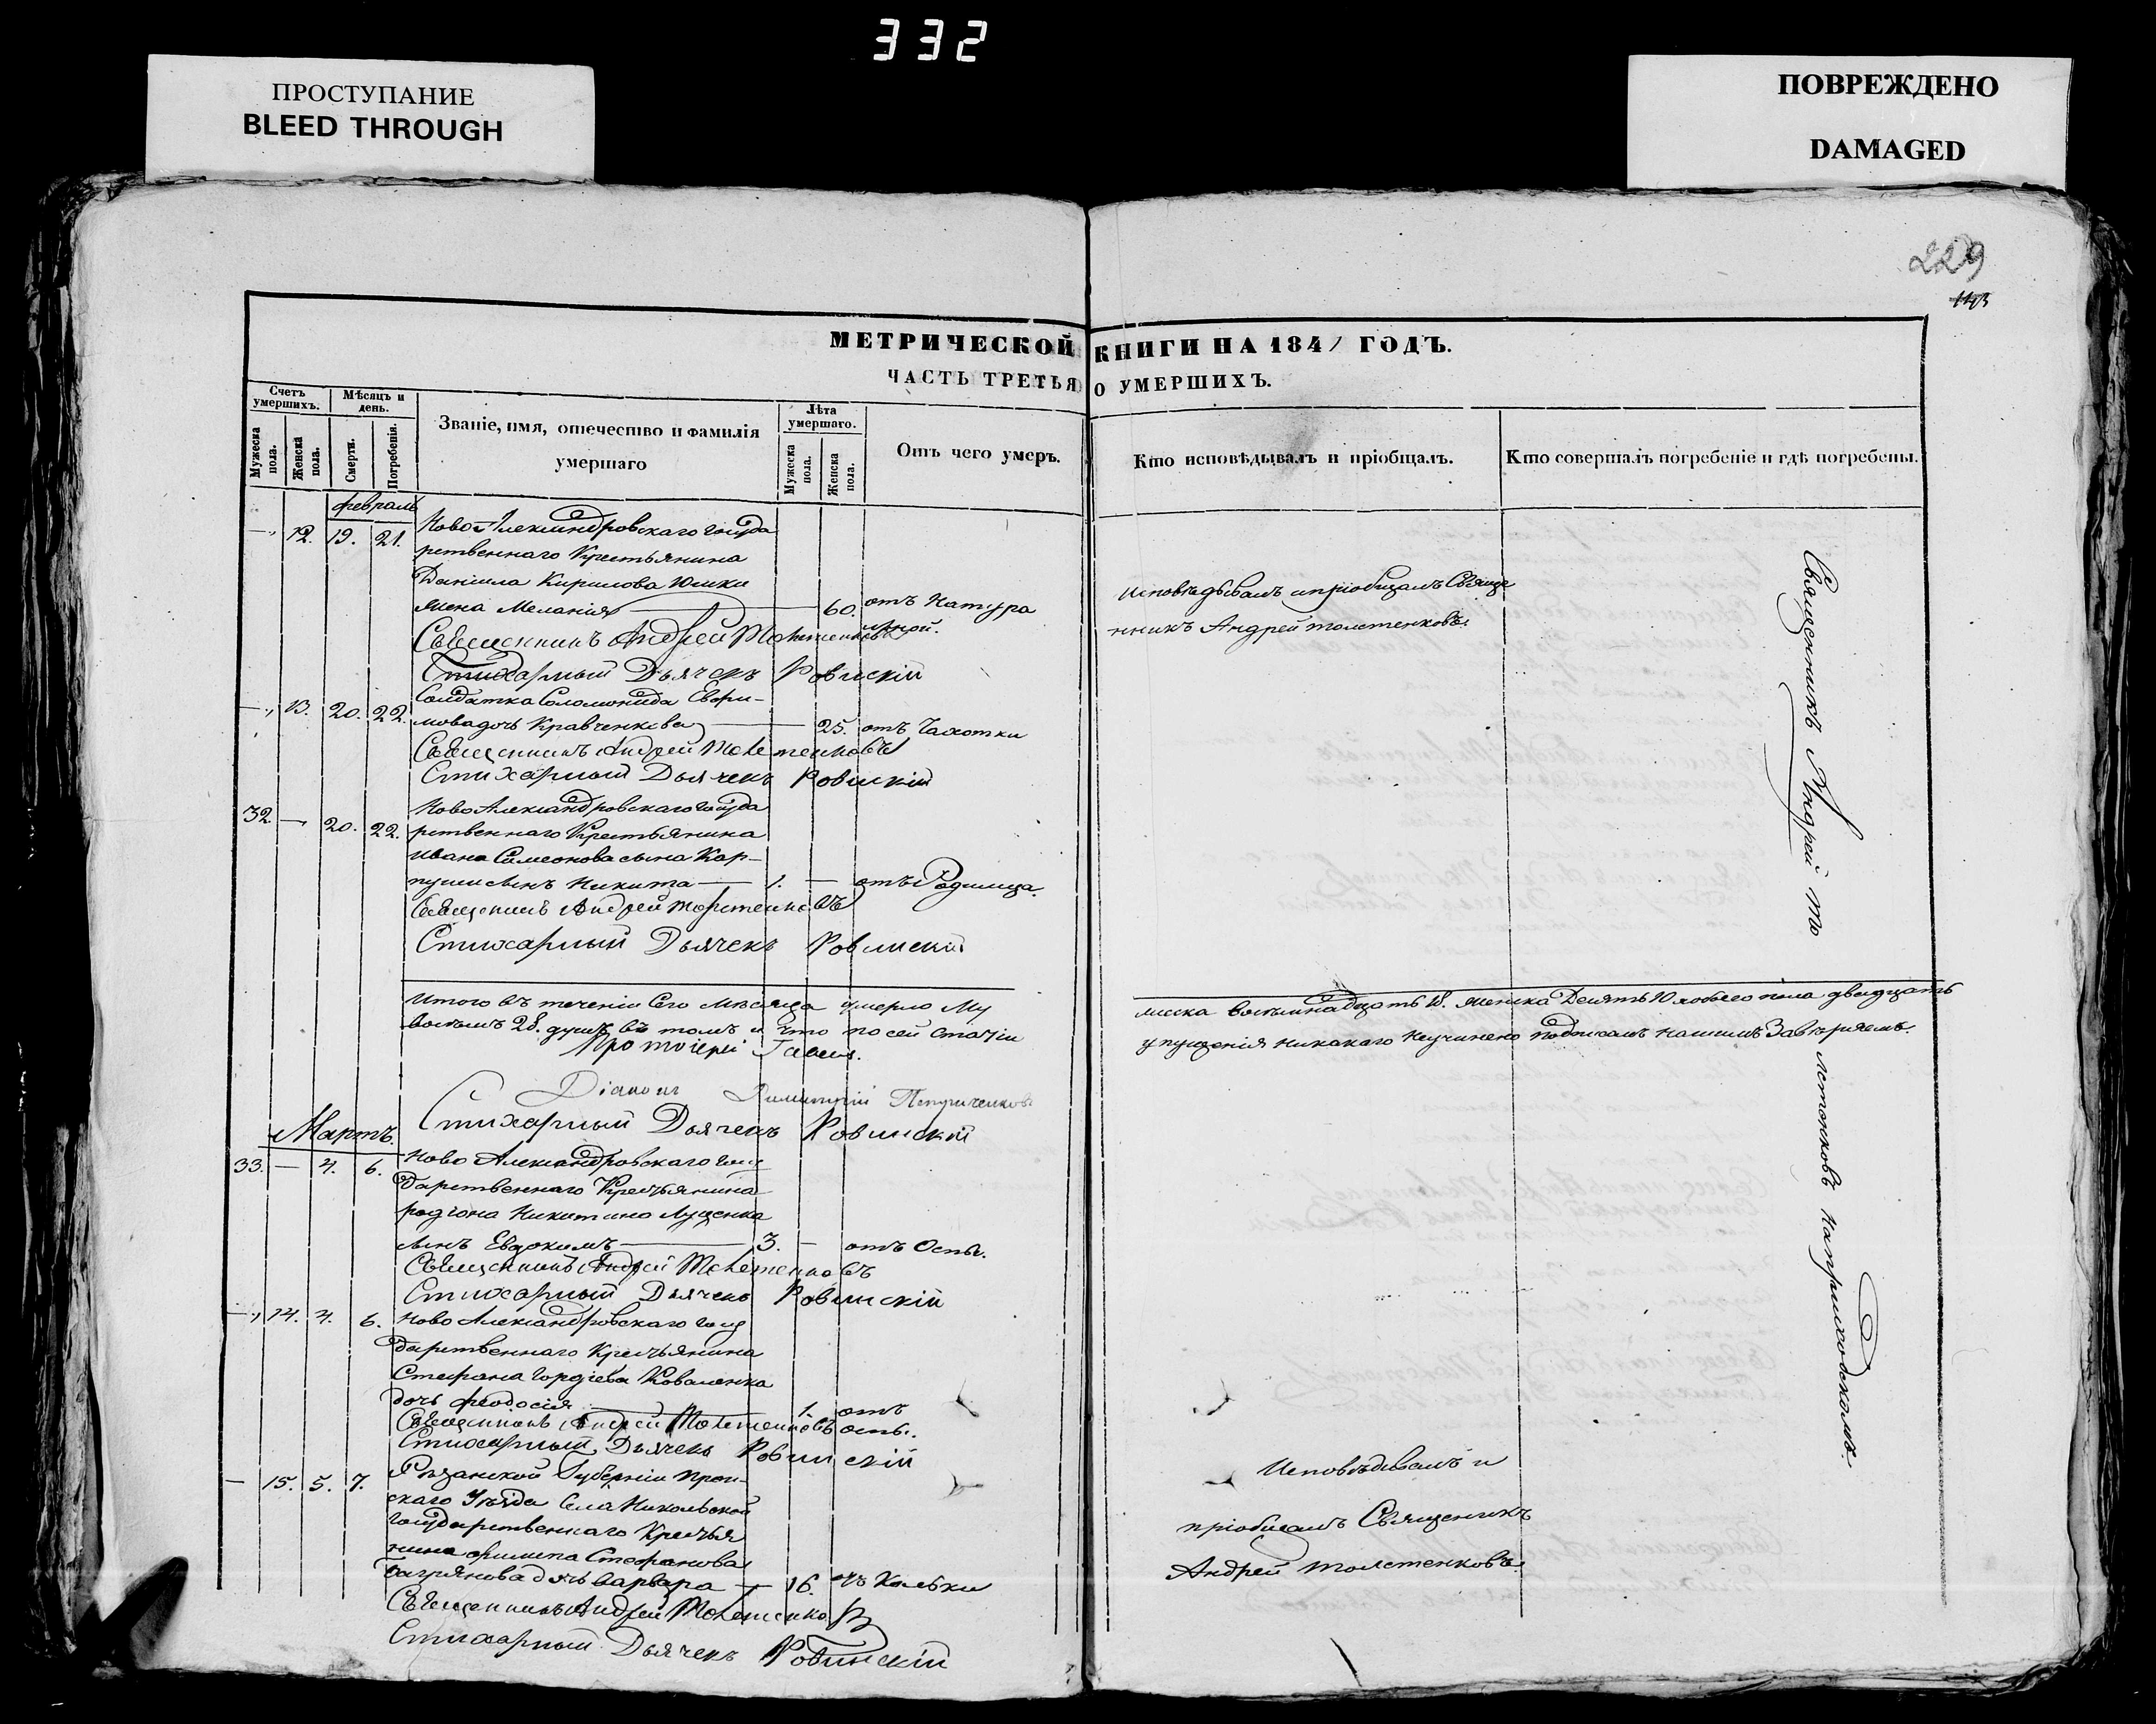 332
ПРОСТУПАНИЕ
BLEED THROUGH
ПОВРЕЖДЕНО
DAMAGED
229
МЕТРИЧЕСКОЙ КНИГИ НА 1841 ГОДЪ.
ЧАСТЬ ТРЕТЬЯ О УМЕРШИХЪ.
Счетъ умершихъ.
Мужеска пола.
Женска пола.
Мѣсяцъ и день.
Смерти.
Погребенія.
Званіе, имя, отечество и фамилія умершаго
Лѣта умершаго.
Мужеска пола.
Женска пола.
Отъ чего умеръ.
Кто исповѣдывалъ и пріобщалъ.
Кто совершалъ погребеніе и гдѣ погребены.
февраль
— 12. 19. 21. Ново Александровскаго госуда
рственнаго Крестьянина
Даниила Кирилова
жена Меланія — 60. отъ Натура
льной.
исповѣдывалъ и пріобщалъ Свяще
нникъ Андрей Толстенковъ.
Священникъ Андрей Толстенковъ
Стихарный Дьячекъ Ровинскій
— 13. 20. 22. Солдатка Соломонида Ефи-
мова дочь Кравченкова — 25. отъ Чахотки
Священникъ Андрей Толстенковъ
Стихарный Дьячекъ Ровинскій
32 — 20. 22. Ново Александровскаго госуда
рственнаго Крестьянина
Ивана Симеонова сына Кар-
пуши сынъ Никита — 1. — отъ Родимца.
Священникъ Андрей Толстенковъ
Стихарный Дьячекъ Ровинскій
Итого въ теченіи сего мѣсяца умерло Му
жеска восемьнадцать 18. женска Десять 10 обоего пола двадцать
восемь 28. душъ въ томъ и что по сей статіи
упущенія никакаго неучинено подписомъ нашимъ Завѣряемъ.
Протоіерей
Діаконъ Димитрій
Стихарный Дьячекъ Ровинскій
Мартъ.
33. — 4. 6. Ново Александровскаго госу
дарственнаго Крестьянина
Родіона Никитина Луценка
сынъ Евдокимъ — 3. — отъ Оспы.
Священникъ Андрей Толстенковъ
Стихарный Дьячекъ Ровинскій
— 14. 4. 6. Ново Александровскаго госу
дарственнаго Крестьянина
Стефана Гордіева Коваленка
дочь Феодосія — 1. отъ
оспы.
Священникъ Андрей Толстенковъ
Стихарный Дьячекъ Ровинскій
— 15. 5. 7. Рязанской Губерніи Прон-
скаго Уѣзда Села Никольской
государственнаго Крестья
нина Филипа Стефанова
дочь Варвара — 16. отъ Кольки
Исповѣдывалъ и
пріобщалъ Священникъ
Андрей Толстенковъ.
Священникъ Андрей Толстенковъ
Стихарный Дьячекъ Ровинскій
Священникъ Андрей Толстенковъ на приходскомъ